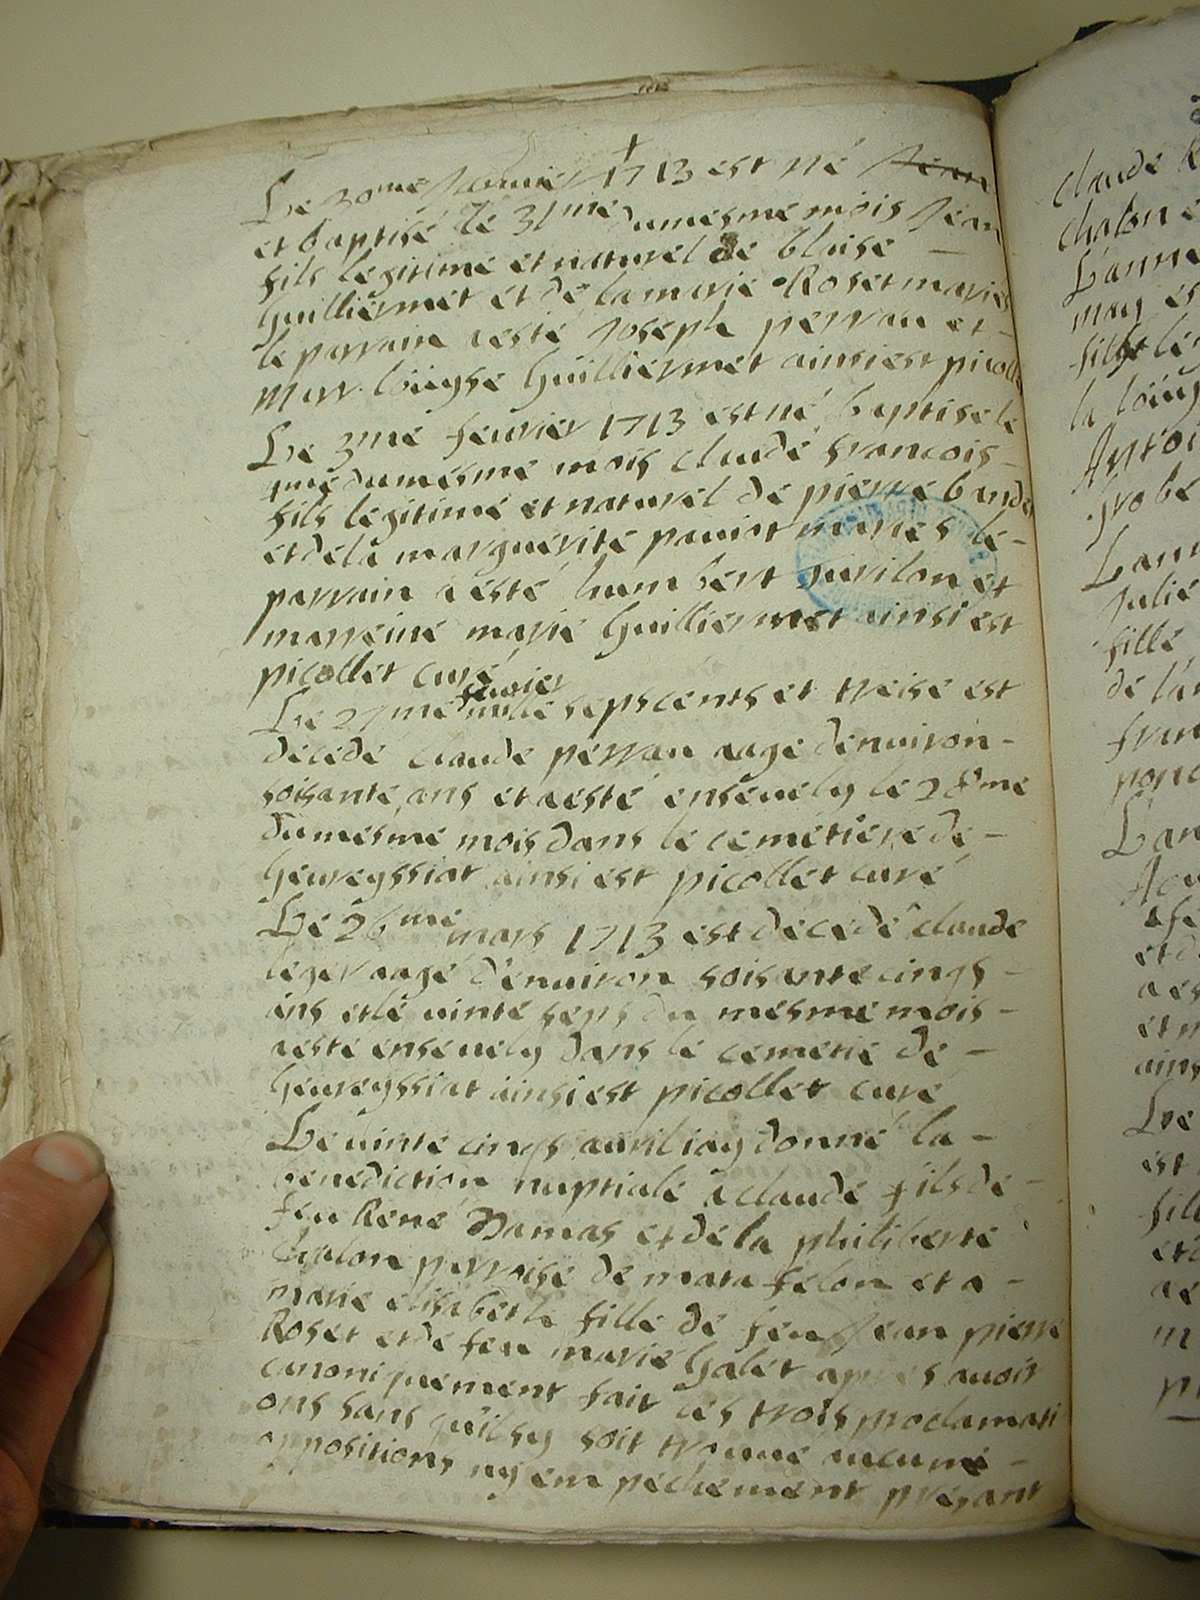 Le 30me Janvier 1713 est né Jean
et baptisé le 31me dumesme mois Jean
fils legitime et naturel de blaise –
Guilliermet et de la marie Roset mariés
le parrain aesté Joseph perrau et –
marr. loüyse Guilliermet ainsi est picollet
Le 3me feurier 1713 est né baptise le
dumesme mois claude francois –
fils legitime et naturel de pierre bande
et de la marguerite paviot maries le –
parrain a esté humbert et
marreine marie Guilliermet ainsi est
picollet curé
feurier
Le 27me mille sepscents et treise est
décédé claude perrau aagé denuiron –
soisante ans et aesté enseuely le 28me
dumesme mois dans le cemetiere de –
heureyssiat ainsi est picollet curé
Le 26me mars 1713 est décedé claude
leger aagé denuiron soisante cings –
ans et le uinte seps du mesme mois –
aesté enseuely dans le cemetie de –
heureyssiat ainsi est picollet curé
Le uinte cings auril iay donné la –
benediction nuptiale a claude fils de –
feu René Damas et de la philiberte
Chalon parroise de matafelon et a –
marie elisabeth fille de feu Jean pierre
Roset et de feu marie Galet apres avoir
canoniquement fait les trois proclamati
ons sans quilsy soit trouue aucune –
oppositions ny empechement présant
claude
chalon
Lanne
may es
la loüys
Lann
Julie
fille
de la
Lan
et d
ains
Le
est
fill